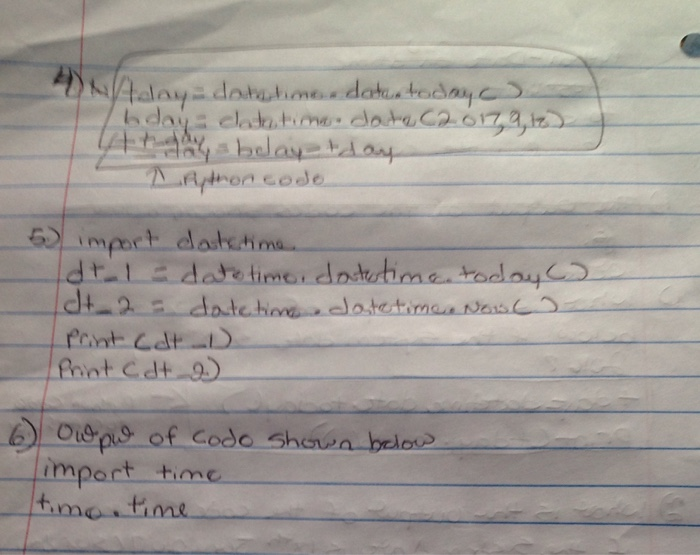 4) tday = datetime.date.today()
bday = datetime.date(2017,9,18)
= bday - tday
↑ Python code
5) import datetime
dt_1 = datetime.datetime.today()
dt_2 = datetime.datetime.Now()
Print(dt_1)
Print(dt_2)
6) Output of code shown below
import time
time.time